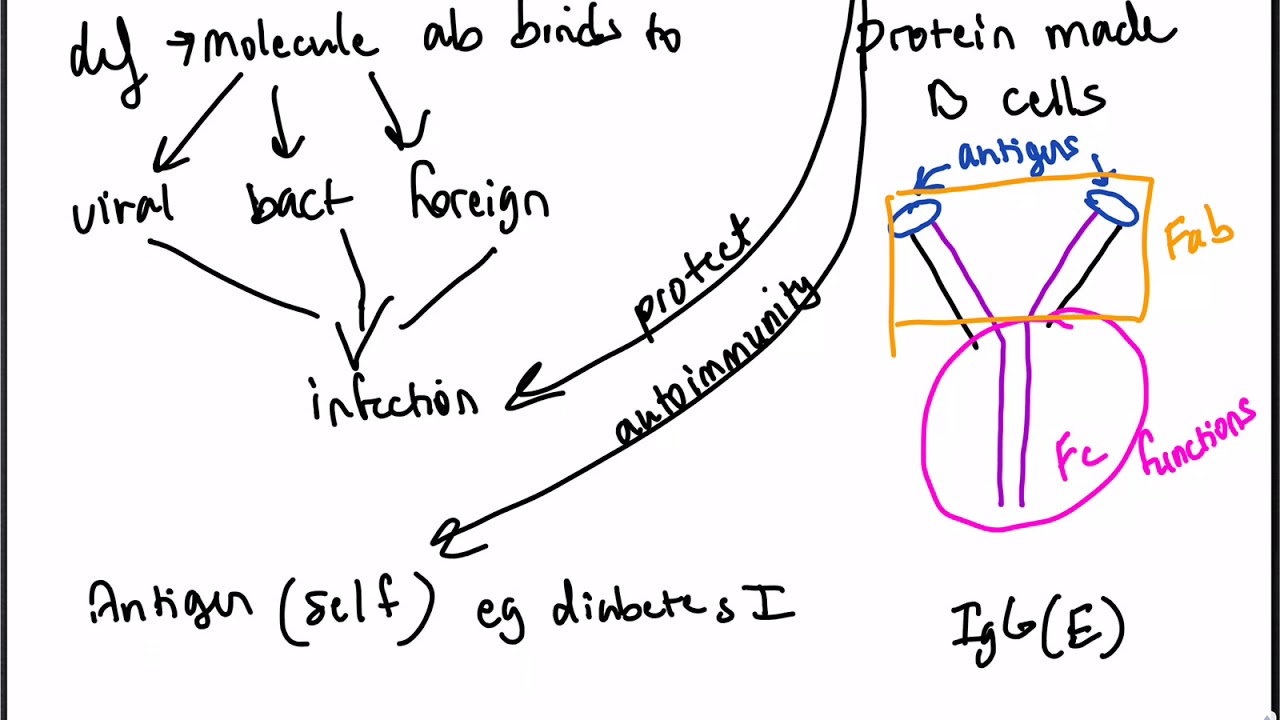 def → molecule ab binds to
viral bact foreign
infection
protect
autoimmunity
Antigen (self) eg diabetes I
protein made
B cells
antigens
Fab
Fc functions
IgG(E)